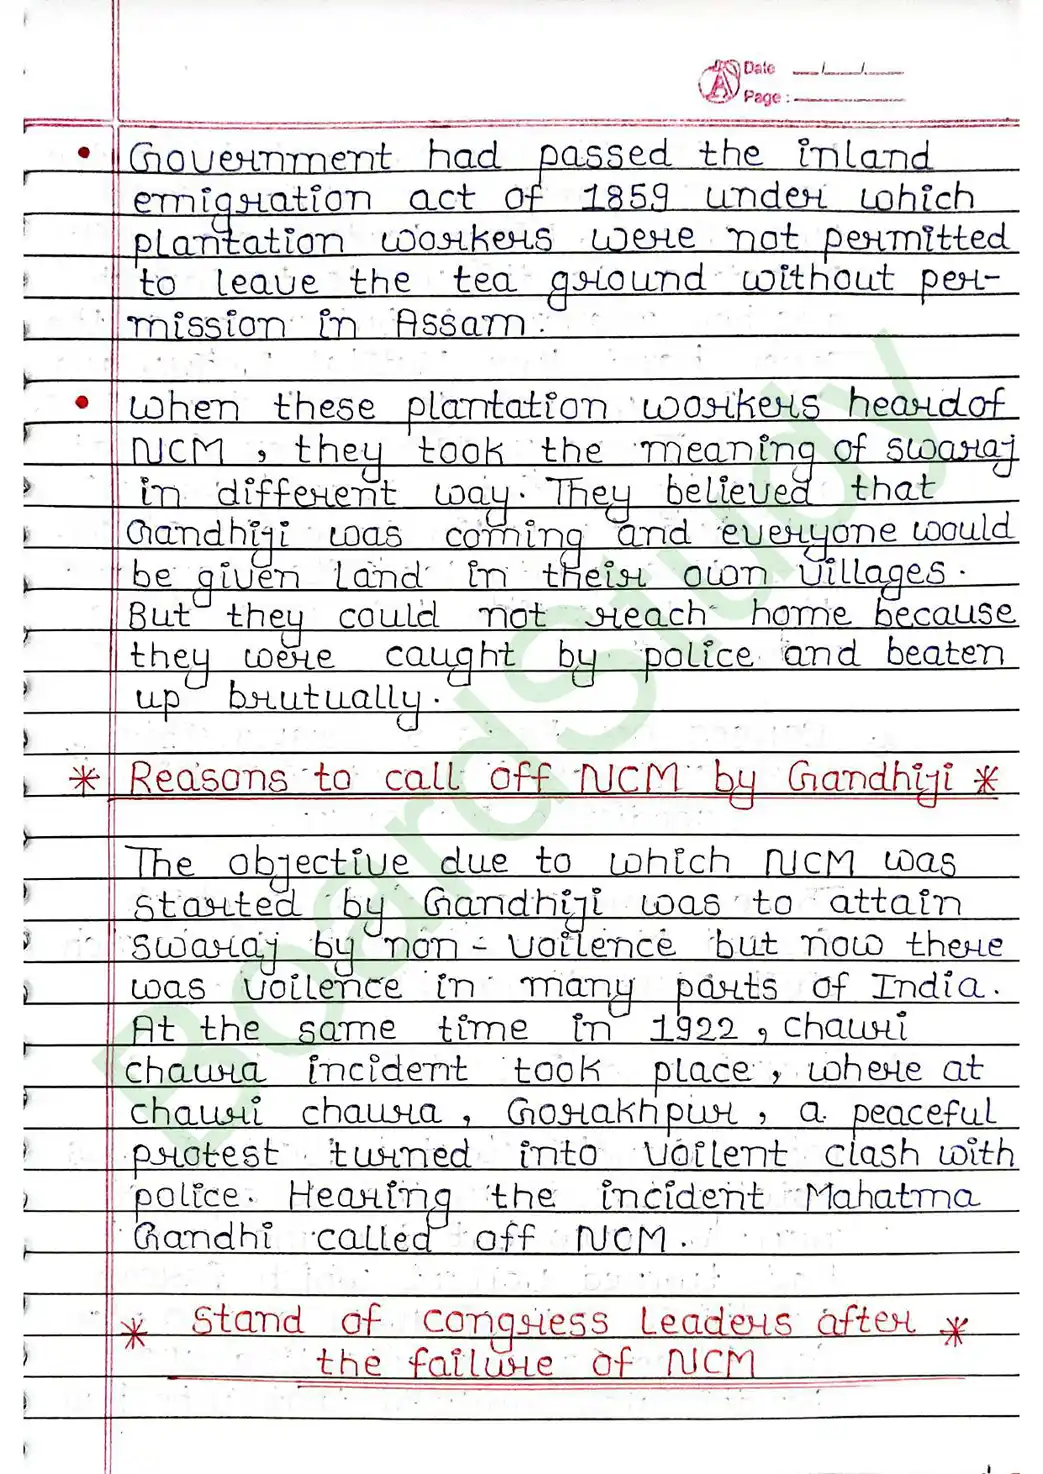 Date __/__/__
Page : ________
• Government had passed the inland
emigration act of 1859 under which
plantation workers were not permitted
to leave the tea ground without per-
mission in Assam.
• When these plantation workers heard of
NCM, they took the meaning of swaraj
in different way. They believed that
Gandhiji was coming and everyone would
be given land in their own villages.
But they could not reach home because
they were caught by police and beaten
up brutually.
* Reasons to call off NCM by Gandhiji *
The objective due to which NCM was
started by Gandhiji was to attain
swaraj by non - voilence but now there
was voilence in many parts of India.
At the same time in 1922, Chauri
chaura incident took place, where at
chauri chaura, Gorakhpur, a peaceful
protest turned into voilent clash with
police. Hearing the incident Mahatma
Gandhi called off NCM.
* Stand of congress leaders after *
the failure of NCM
BoardStudy